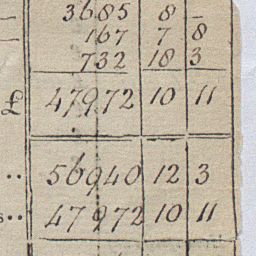 3685 8 –
167 7 8
732 18 3
£ 47972 10 11
56940 12 3
47972 10 11